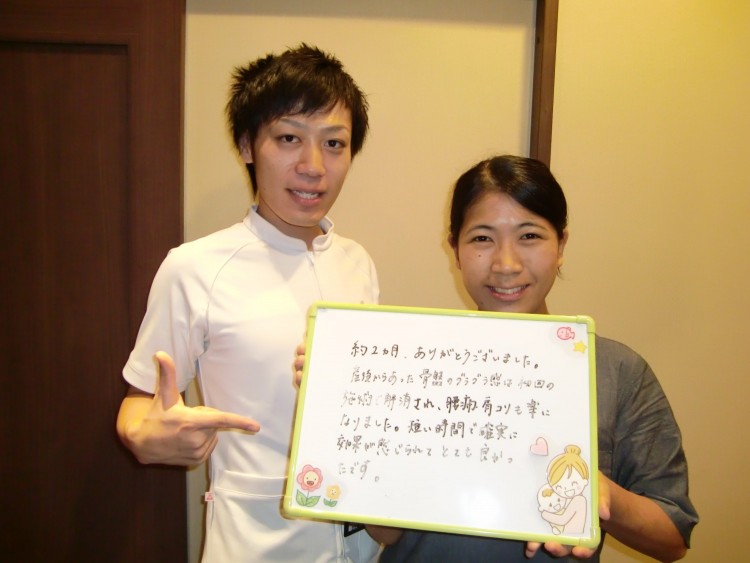 約2ヵ月、ありがとうございました。
産後からあった骨盤のグラグラ感は初回の
施術で解消され、腰痛、肩コリも楽に
なりました。短い時間で確実に
効果が感じられてとても良かっ
たです。